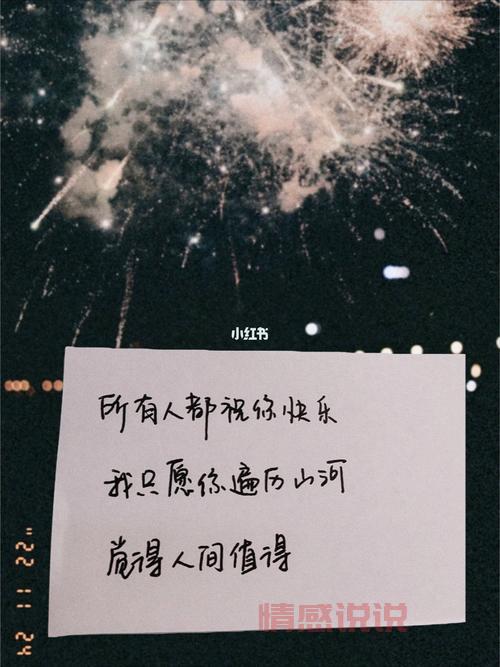 小红书
所有人都祝你快乐
我只愿你遍历山河
觉得人间值得
情感说说
24 11 22 "